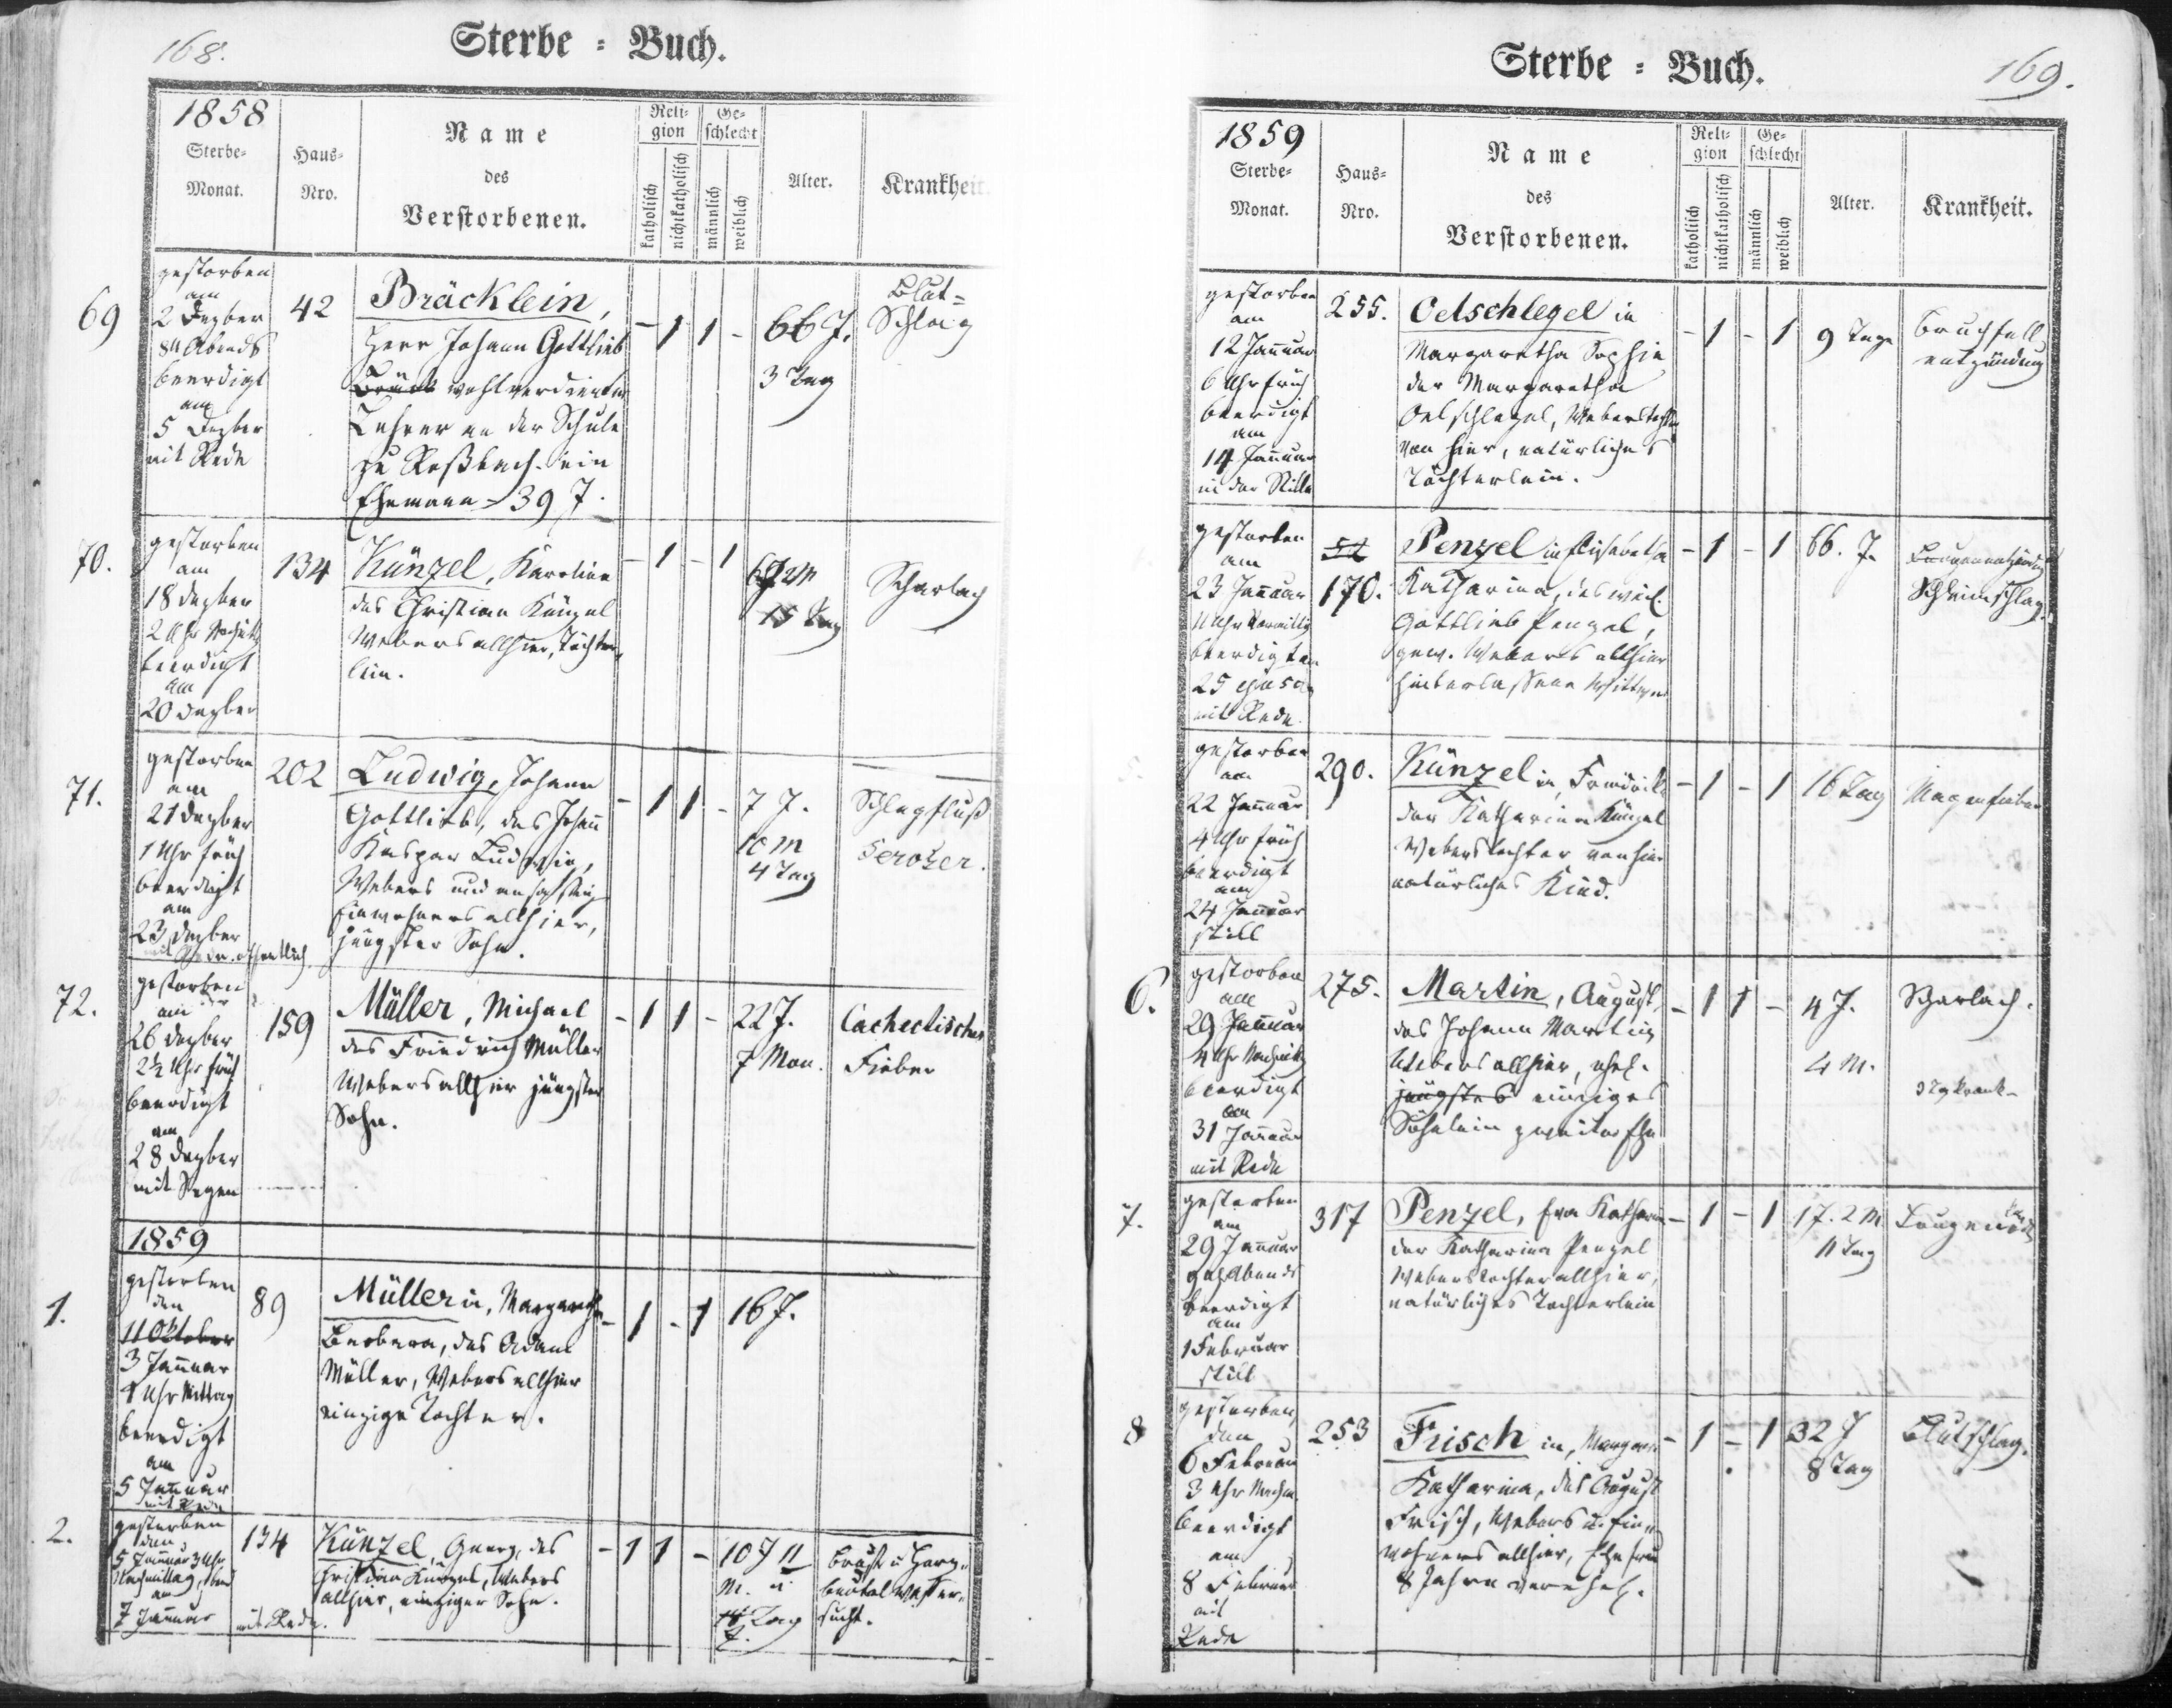 168.
Sterbe = Buch.
1858
Sterbe-
Monat.
Haus-
Nro.
Name
des
Verstorbenen.
Reli-
gion
katholisch
nichtkatholisch
Ge-
schlecht
männlich
weiblich
Alter.
Krankheit.
69
gestorben
am
2 Dezber
8 U Abends
beerdigt
am
5 Dezber
mit Rede
42
Bräcklein,
Herr Johann Gottlieb
wohlverdienter
Lehrer an der Schule
zu Roßbach. ein
Ehemann 39 J.
- 1 1 -
66 J.
3 Tag
Blut=
Schlag
70.
gestorben
am
18 dezber
2 Uhr
beerdigt
am
20 dezber
134
Künzel, Karoline
des Christian Künzel
Webers allhier, Töchter-
lein.
- 1 - 1
15 Tag
Scharlach
71.
gestorben
am
21 dezber
1 Uhr früh
beerdigt
am
23 dezber
mit Rede. öffentlich.
202
Ludwig, Johann
Gottlieb, des Johann
Kaspar Ludwig,
Webers und ansässig
Einwohners allhier,
jüngster Sohn.
- 1 1 -
7 J.
10 M
4 Tag
Schlagfluß
Seroser.
72.
gestorben
am
26 dezber
2½ Uhr früh
beerdigt
am
28 dezber
mit Segen
159
Müller, Michael
des Friedrich Müller
Webers allhier jüngster
Sohn.
- 1 1 -
22 J.
7 Mon.
Cachectisches
Fieber
1859
1.
gestorben
den
11 Oktober
3 Januar
1 Uhr Mittag
beerdigt
am
5 Januar
mit Rede
89
Müller in, Margaretha
Barbara, des Adam
Müller, Webers allhier
einzige Tochter.
- 1 - 1
16 J.
2.
gestorben
den
5 Januar 3 Uhr
Nachmittag,
am
7 Januar
mit Rede.
134
Künzel, Georg, des
Christian Künzel, Webers
allhier, einziger Sohn.
- 1 1 -
10 J 11
M. u
Tag
7.
Brust u Herz-
beutel Wasser-
sucht.
Sterbe = Buch.
169.
1859
Sterbe-
Monat.
Haus-
Nro.
Name
des
Verstorbenen.
Reli-
gion
katholisch
nichtkatholisch
Ge-
schlecht
männlich
weiblich
Alter.
Krankheit.
gestorben
am
12 Januar
6 Uhr früh
beerdigt
am
14 Januar
in der Stille
255.
Oelschlegel in
Margaretha Sophie
der Margaretha
Oelschlegel, Weberstochter
von hier, natürliches
Töchterlein.
- 1 - 1
9 Tage
Bauchfell
entzündung
gestorben
am
23 Januar
11 Uhr Vormittg
beerdigt am
25
mit Rede.
170.
Penzel in Elisabetha
Katharina, des weil.
Gottlieb Penzel,
gew. Webers allhier
hinterlassene Wittwe
- 1 - 1
66. J.
Schleimschlag.
gestorben
am
22 Januar
4 Uhr früh
beerdigt
am
24 Januar
still
290.
Künzel in, Friedrike
der Katharina Künzel
Weberstochter von hier
natürliches Kind.
- 1 - 1
16 Tag
Magenfieber
6.
gestorben
am
29 Januar
4 Uhr Nachmittg
beerdigt
am
31 Januar
mit Rede
275.
Martin, August,
des Johann Martin
Webers allhier, ehel.
jüngstes einziges
Söhnlein zweiter Ehe
- 1 1 -
4 J.
4 M.
Scharlach.
3 Tg krank-
7.
gestorben
am
29 Januar
9 Uhr Abends
beerdigt
am
1 Februar
still
317
Penzel, Eva Katharin
der Katharina Penzel
Weberstochter allhier,
natürliches Töchterlein
- 1 - 1
1 J. 2 M
11 Tag
8
gestorben
den
6 Februar
3 Uhr Nachm.
beerdigt
am
8 Februar
mit
Rede
253
Frisch in, Margar
Katharina, des August
Frisch, Webers u. Ein-
wohners allhier, Ehefrau
8 Jahre verehel.
- 1 - 1
32 J
8 Tag
Blutschlag.